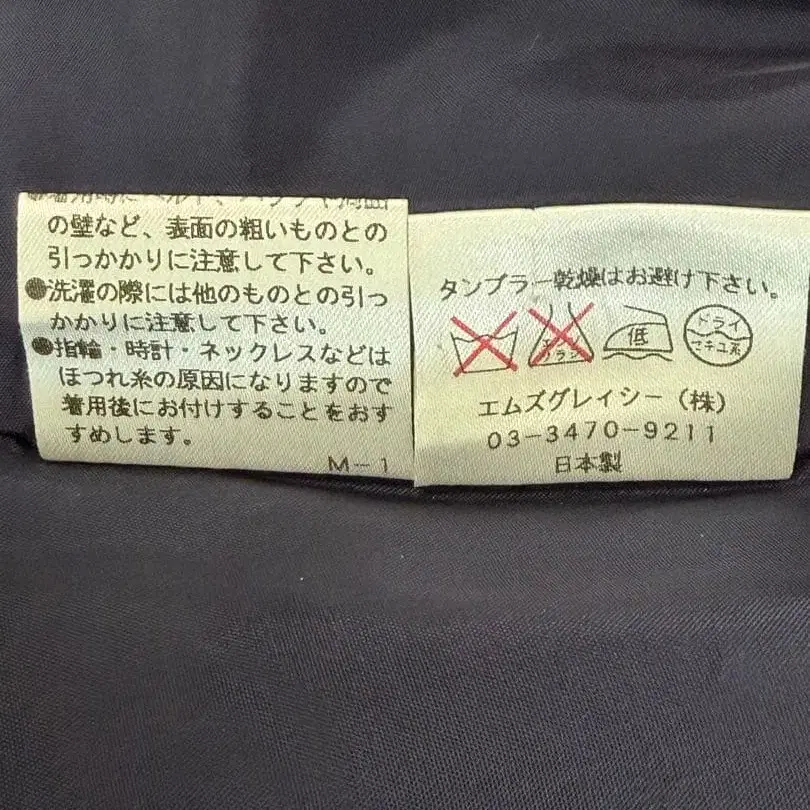 の壁など、表面の粗いものとの
引っかかりに注意して下さい。
●洗濯の際には他のものとの引っ
かかりに注意して下さい。
●指輪・時計・ネックレスなどは
ほつれ糸の原因になりますので
着用後にお付けすることをおす
すめします。
M-1
タンブラー乾燥はお避け下さい。
低
ドライ
セキユ系
エムズグレイシー(株)
03-3470-9211
日本製